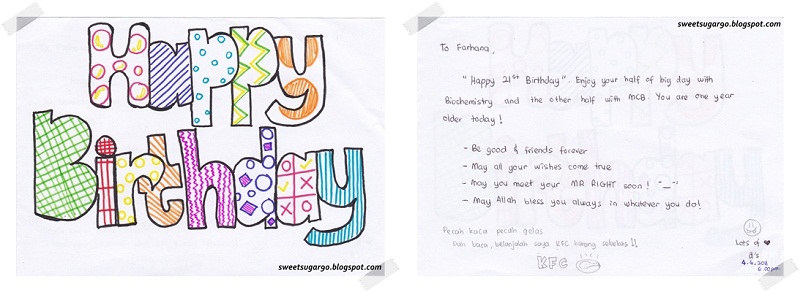 Happy
Birthday
sweetsugargo.blogspot.com
sweetsugargo.blogspot.com
To Farhana,
"Happy 21st Birthday". Enjoy your half of big day with
Biochemistry and the other half with MCB. You are one year
older today!
- Be good & friends forever
- May all your wishes come true
- May you meet your MR RIGHT soon! ^__^
- May Allah bless you always in whatever you do!
Pecah kaca pecah gelas
Dah baca, belanjalah saya KFC barang sebelas!!
KFC
Lots of ♥
d's
4.4.2011
6.00pm